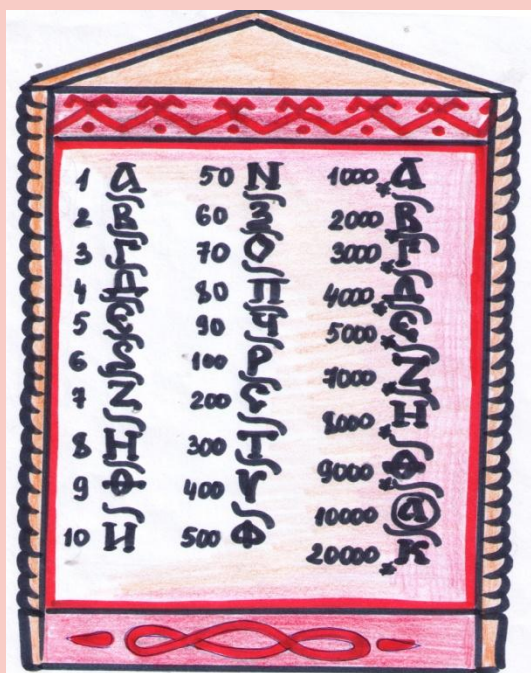 1 А
2 В
3 Г
4 Д
5 Є
6 Ѕ
7 Z
8 Н
9 Ф
10 И
50 N
60 З
70 О
80 П
90 Ч
100 Р
200 С
300 Т
400 Ѵ
500 Ф
1000 ҂А
2000 ҂В
3000 ҂Г
4000 ҂Д
5000 ҂Є
7000 ҂Z
8000 ҂Н
9000 ҂Ф
10000 А
20000 ҂К